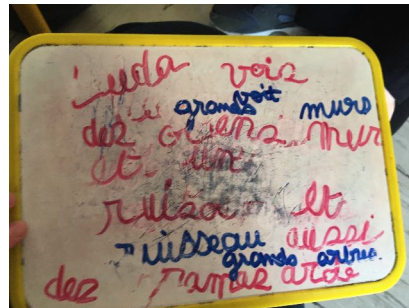 Luda vois
voit
grands murs
des grens mur
et un
ruiso et
ruissegu aussi
grands arbres
des rames arde